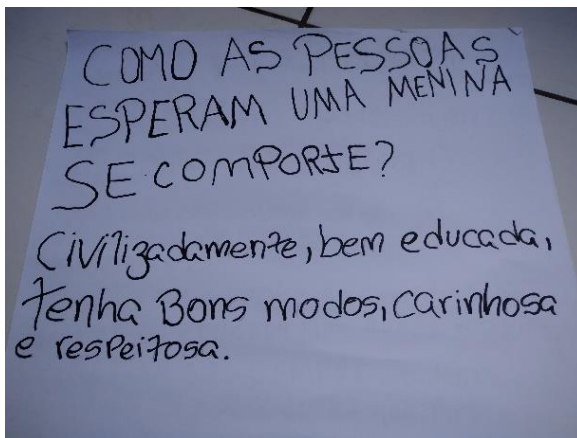 COMO AS PESSOAS
ESPERAM UMA MENINA
SE COMPORTE?
Civilizadamente, bem educada,
tenha Bons modos, carinhosa
e respeitosa.